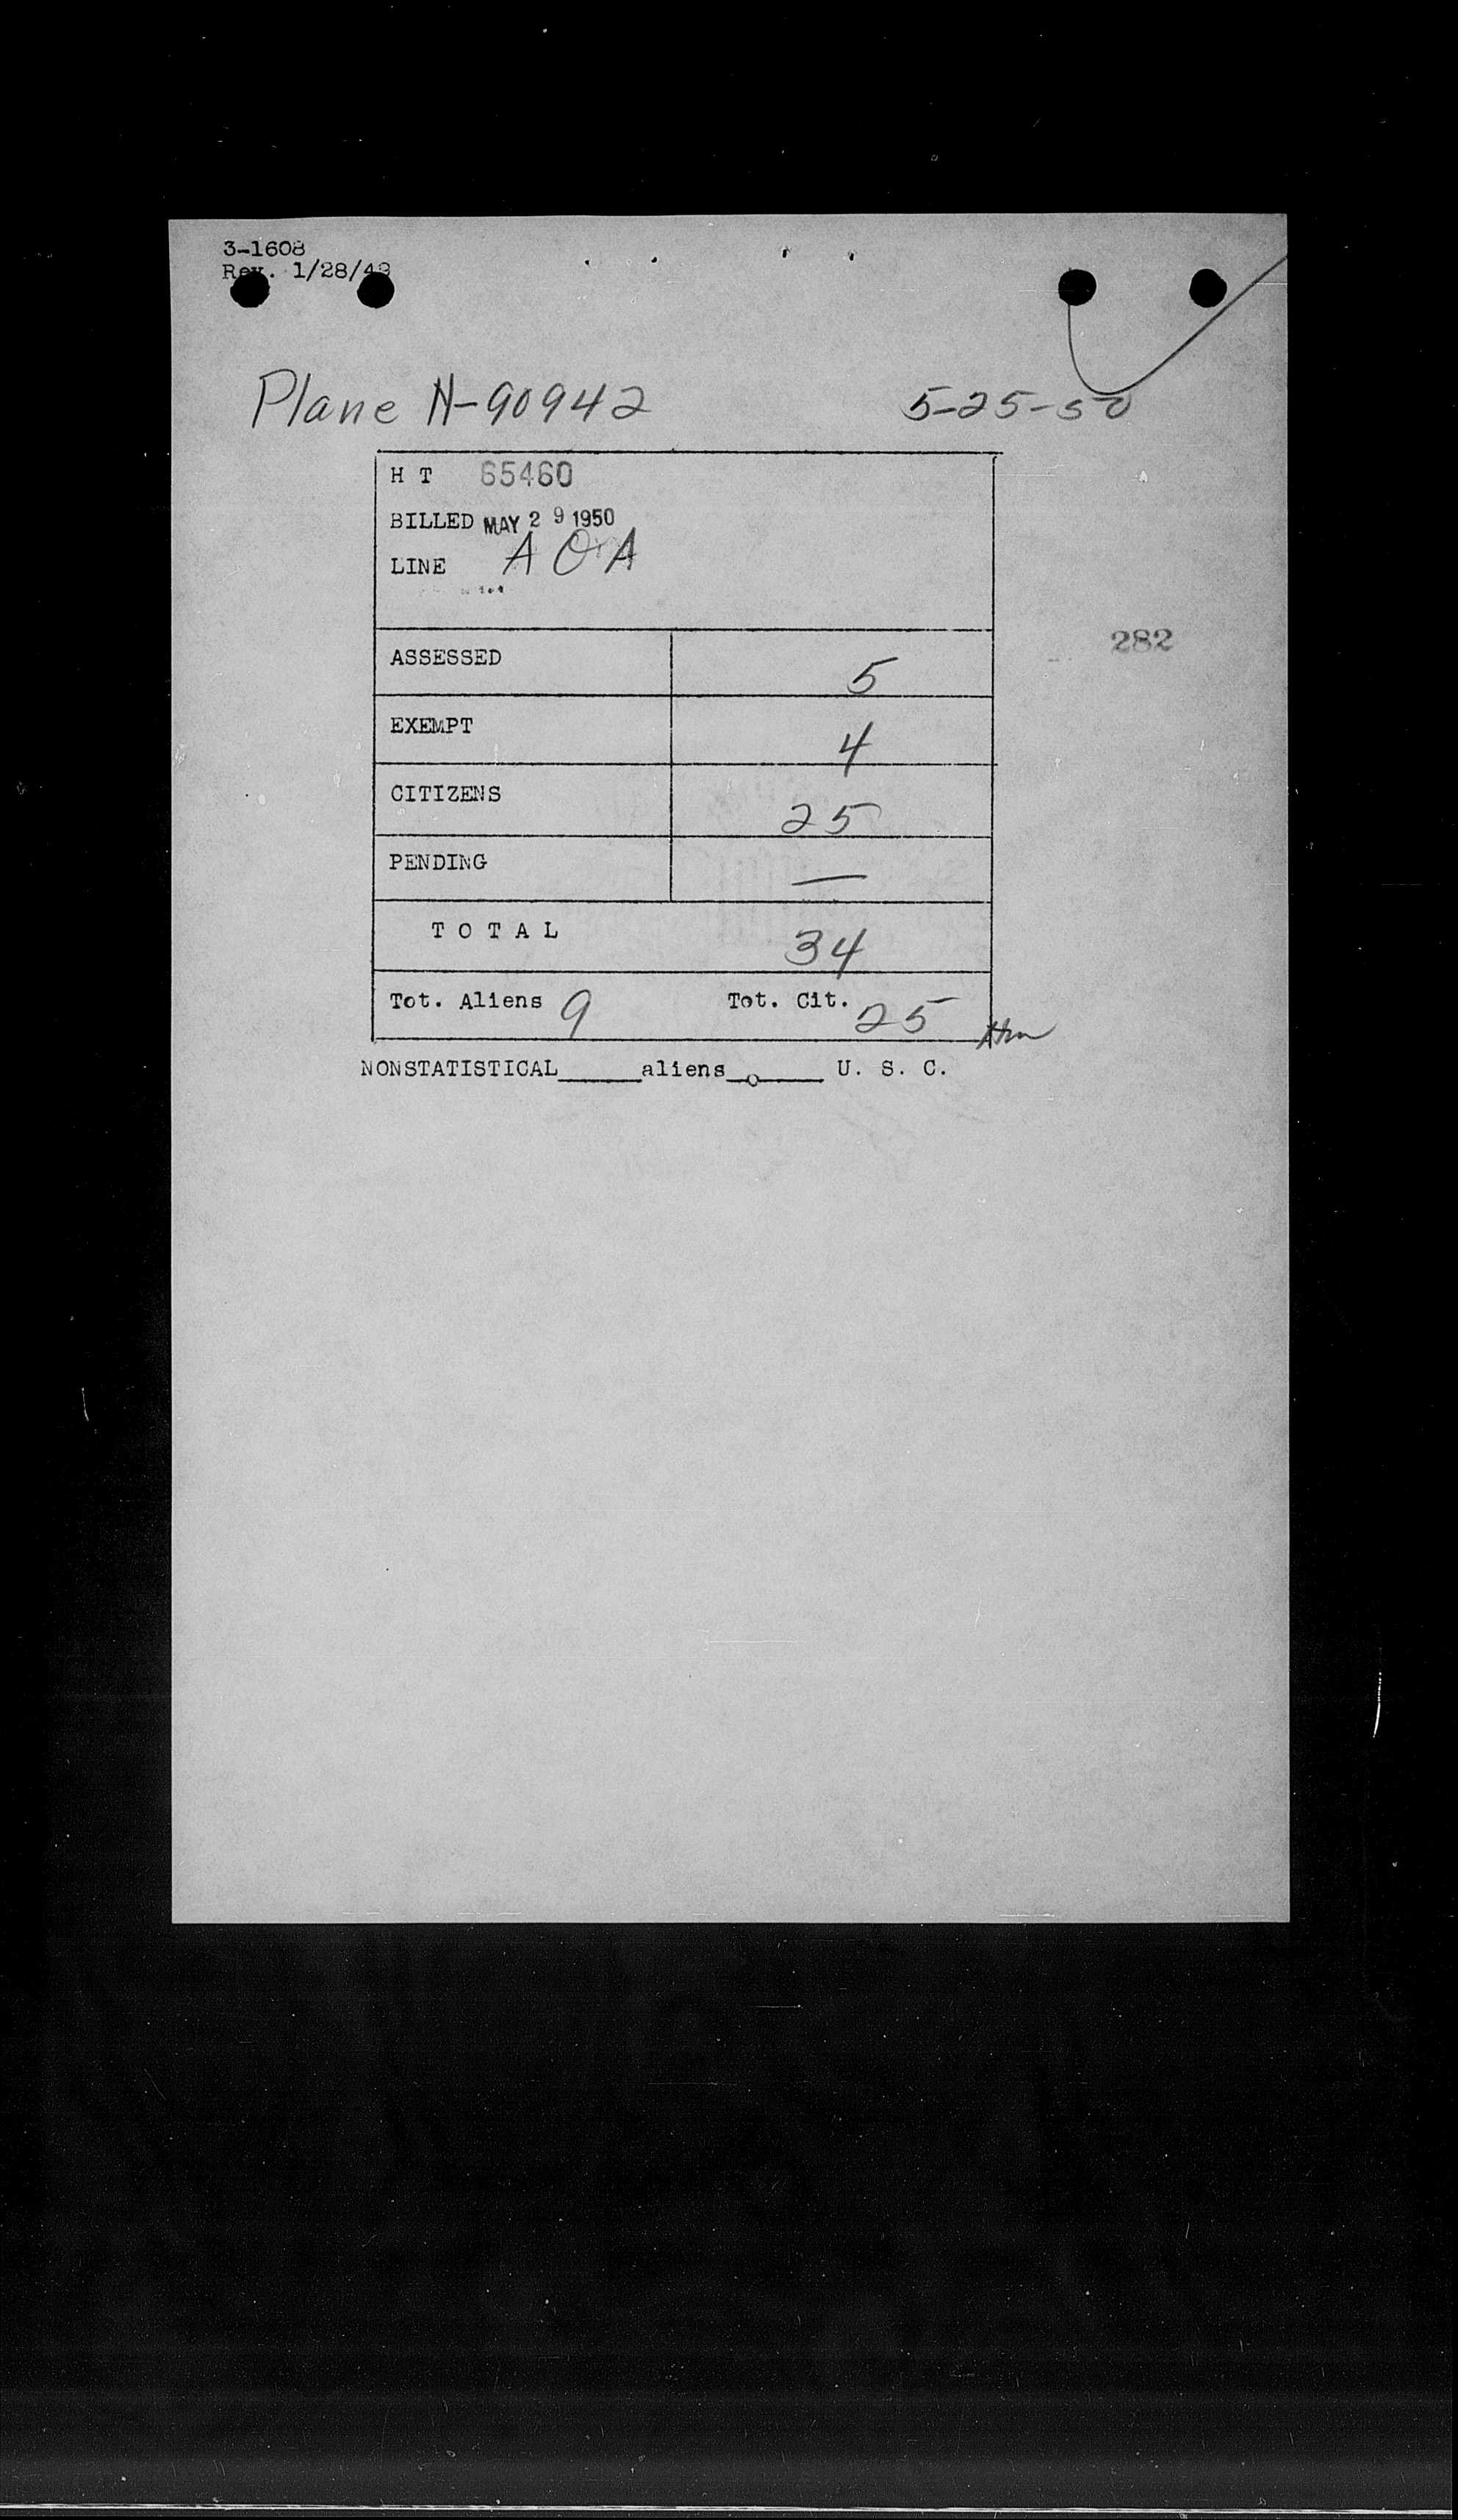 3-1608
Rev. 1/28/49
Plane N-90942 5-25-50
H T 65460
BILLED MAY 29 1950
LINE A O A
282
ASSESSED 5
EXEMPT 4
CITIZENS 25
PENDING —
T O T A L 34
Tot. Aliens 9 Tot. Cit. 25
NONSTATISTICAL_____aliens__o____ U. S. C.